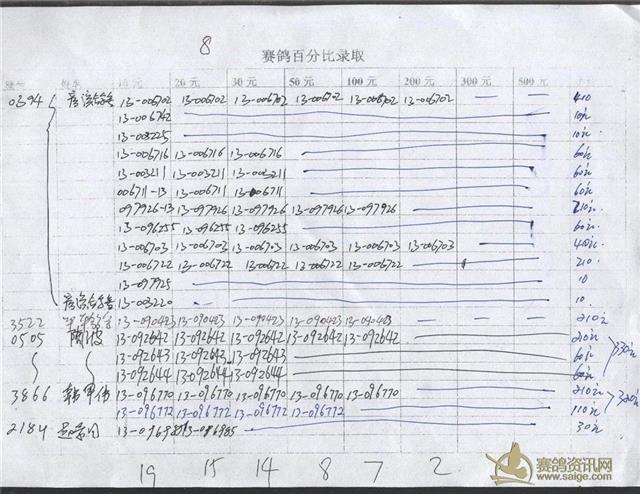 8
赛鸽百分比录取
10元 20元 30元 50元 100元 200元 300元 500元
0394 13-006702 13-006702 13-006702 13-006702 13-006702 13-006702 — —
13-006742 10元
13-003225 10元
13-006716 13-006716 13-006716 60元
13-003211 13-003211 13-003211 60元
006711-13 13-006711 13-006711 60元
097926-13 13-097926 13-097926 13-097926 13-097926 210元
13-096255 13-096255 13-096255 60元
13-006703 13-006703 13-006703 13-006703 13-006703 13-006703
13-006722 13-006722 13-006722 13-006722 13-006722 210
13-097925 10
13-003220 10
3522 13-090423 13-090423 13-090423 13-090423 13-090423 210元
0505 13-092642 13-092642 13-092642 13-092642 13-092642 210元
13-092643 13-092643 13-092643 60元 330元
13-092644 13-092644 13-092644 60元
3866 13-096770 13-096770 13-096770 13-096770 13-096770 210元
13-096772 13-096772 13-096772 13-096772 110元 320元
2184 13-096985 30元
19 15 14 8 7 2
赛鸽资讯网
www.saige.com